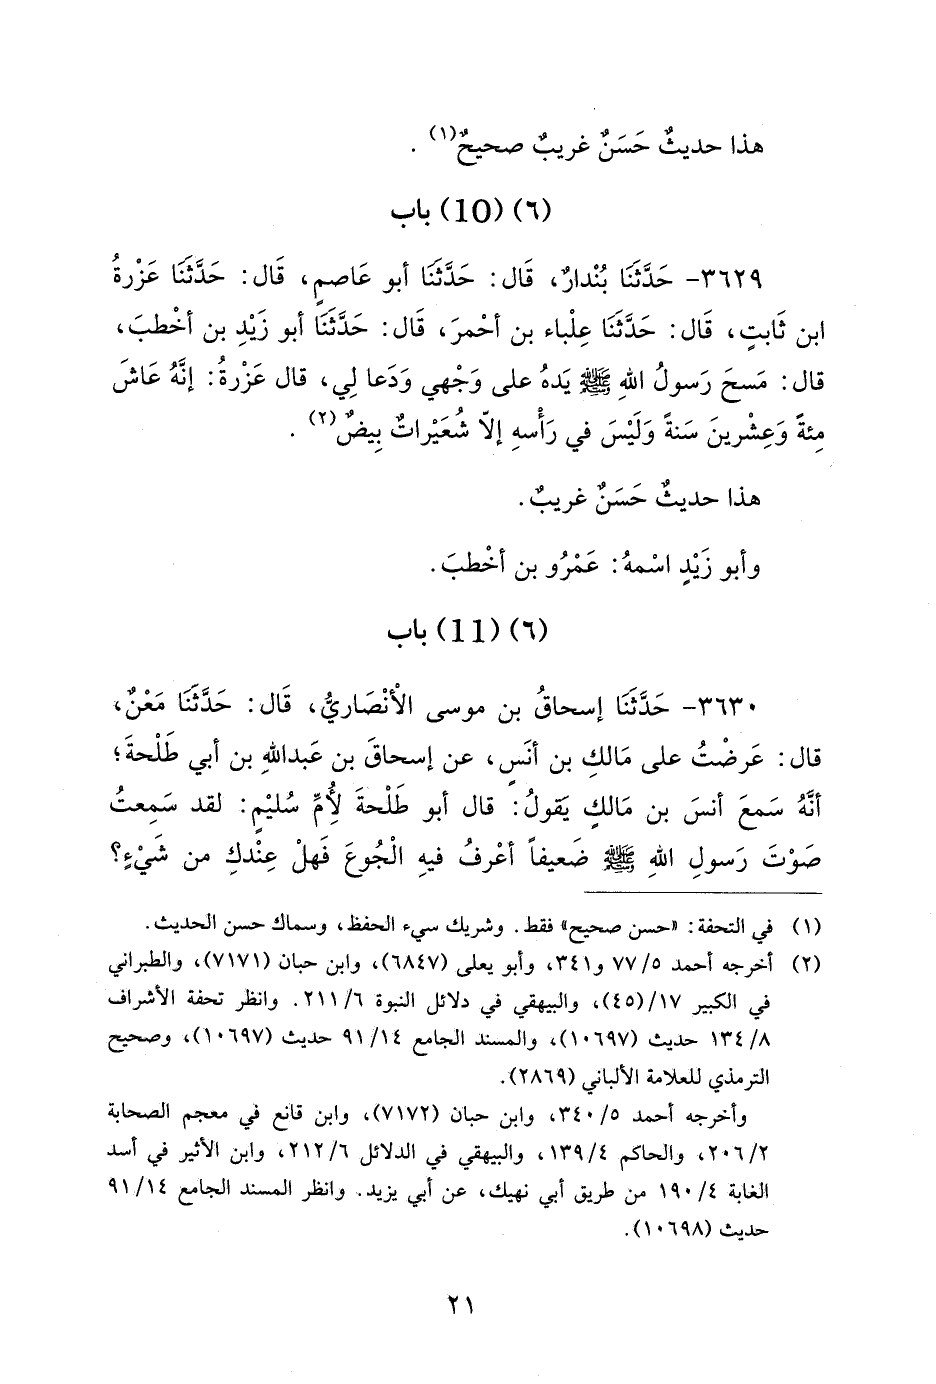 هذا حديثٌ حَسَنٌ غريبٌ صحيحٌ(١) .
(٦) (10) باب
٣٦٢٩- حَدَّثَنَا بُنْدارٌ، قَال: حَدَّثَنَا أبو عَاصمٍ، قَال: حَدَّثَنَا عَزْرةُ
ابن ثَابتٍ، قَال: حَدَّثَنَا عِلْباء بن أحْمرَ، قَال: حَدَّثَنَا أبو زَيْدِ بن أخْطبَ،
قال: مَسحَ رَسولُ اللهِ ﷺ يَدهُ على وَجْهي وَدَعا لِي، قال عَزْرةُ: إنَّهُ عَاشَ
مِئةً وَعِشْرينَ سَنةً وَلَيْسَ في رَأْسهِ إلاّ شُعَيْراتٌ بِيضٌ(٢) .
هذا حديثٌ حَسَنٌ غريبٌ.
وأبو زَيْدٍ اسْمهُ: عَمْرُو بن أخْطبَ.
(٦) (11) باب
٣٦٣٠- حَدَّثَنَا إسحاقُ بن موسى الأنْصَاريُّ، قَال: حَدَّثَنَا مَعْنٌ،
قال: عَرضْتُ على مَالكِ بن أنَسٍ، عن إسحاقَ بن عَبداللهِ بن أبي طَلْحةَ؛
أنَّهُ سَمعَ أنسَ بن مَالكٍ يَقولُ: قال أبو طَلْحةَ لأُمِّ سُليْمٍ: لقد سَمِعتُ
صَوْتَ رَسولِ اللهِ ﷺ ضَعيفاً أعْرفُ فيهِ الْجُوعَ فَهلْ عِنْدكِ من شَيْءٍ؟
(١) في التحفة: «حسن صحيح» فقط. وشريك سيء الحفظ، وسماك حسن الحديث.
(٢) أخرجه أحمد ٥/ ٧٧ و٣٤١، وأبو يعلى (٦٨٤٧)، وابن حبان (٧١٧١)، والطبراني
في الكبير ١٧/(٤٥)، والبيهقي في دلائل النبوة ٦/ ٢١١. وانظر تحفة الأشراف
٨/ ١٣٤ حديث (١٠٦٩٧)، والمسند الجامع ١٤/ ٩١ حديث (١٠٦٩٧)، وصحيح
الترمذي للعلامة الألباني (٢٨٦٩).
وأخرجه أحمد ٥/ ٣٤٠، وابن حبان (٧١٧٢)، وابن قانع في معجم الصحابة
٢/ ٢٠٦، والحاكم ٤/ ١٣٩، والبيهقي في الدلائل ٦/ ٢١٢، وابن الأثير في أسد
الغابة ٤/ ١٩٠ من طريق أبي نهيك، عن أبي يزيد. وانظر المسند الجامع ١٤/ ٩١
حديث (١٠٦٩٨).
٢١